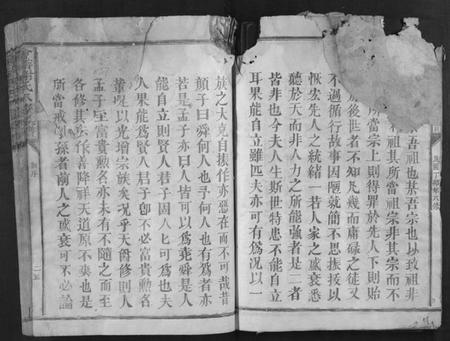 吾祖也某吾宗也以致祖非
祖其所當祖宗非其宗而不
所當宗上則得罪於先人下則貽
於後世者不知凡幾而庸碌之徒又
不過循行故事因陋就簡一不思振拔以
恢宏先人之統緒一若人家之盛衰悉
聽於天而非人力之所能強者是二者
皆非也今夫人生斯世特患不能自立
耳果能自立雖匹夫亦可有為况以一
族之大克自振作亦惡在而不可哉昔
顏子曰舜何人也予何人也有為者亦
若是孟子亦曰人皆可以為堯舜是人
能自立則賢人君子因人匕可為也夫
人果能為賢人君子卽不必富貴勲名
業足以光增宗族矣况乎天爵修則人
孟子至富貴勲名亦未有不隨之而至
各修其作善降祥天道原不爽也是
所當戒勗子孫者前人之盛衰可不必論